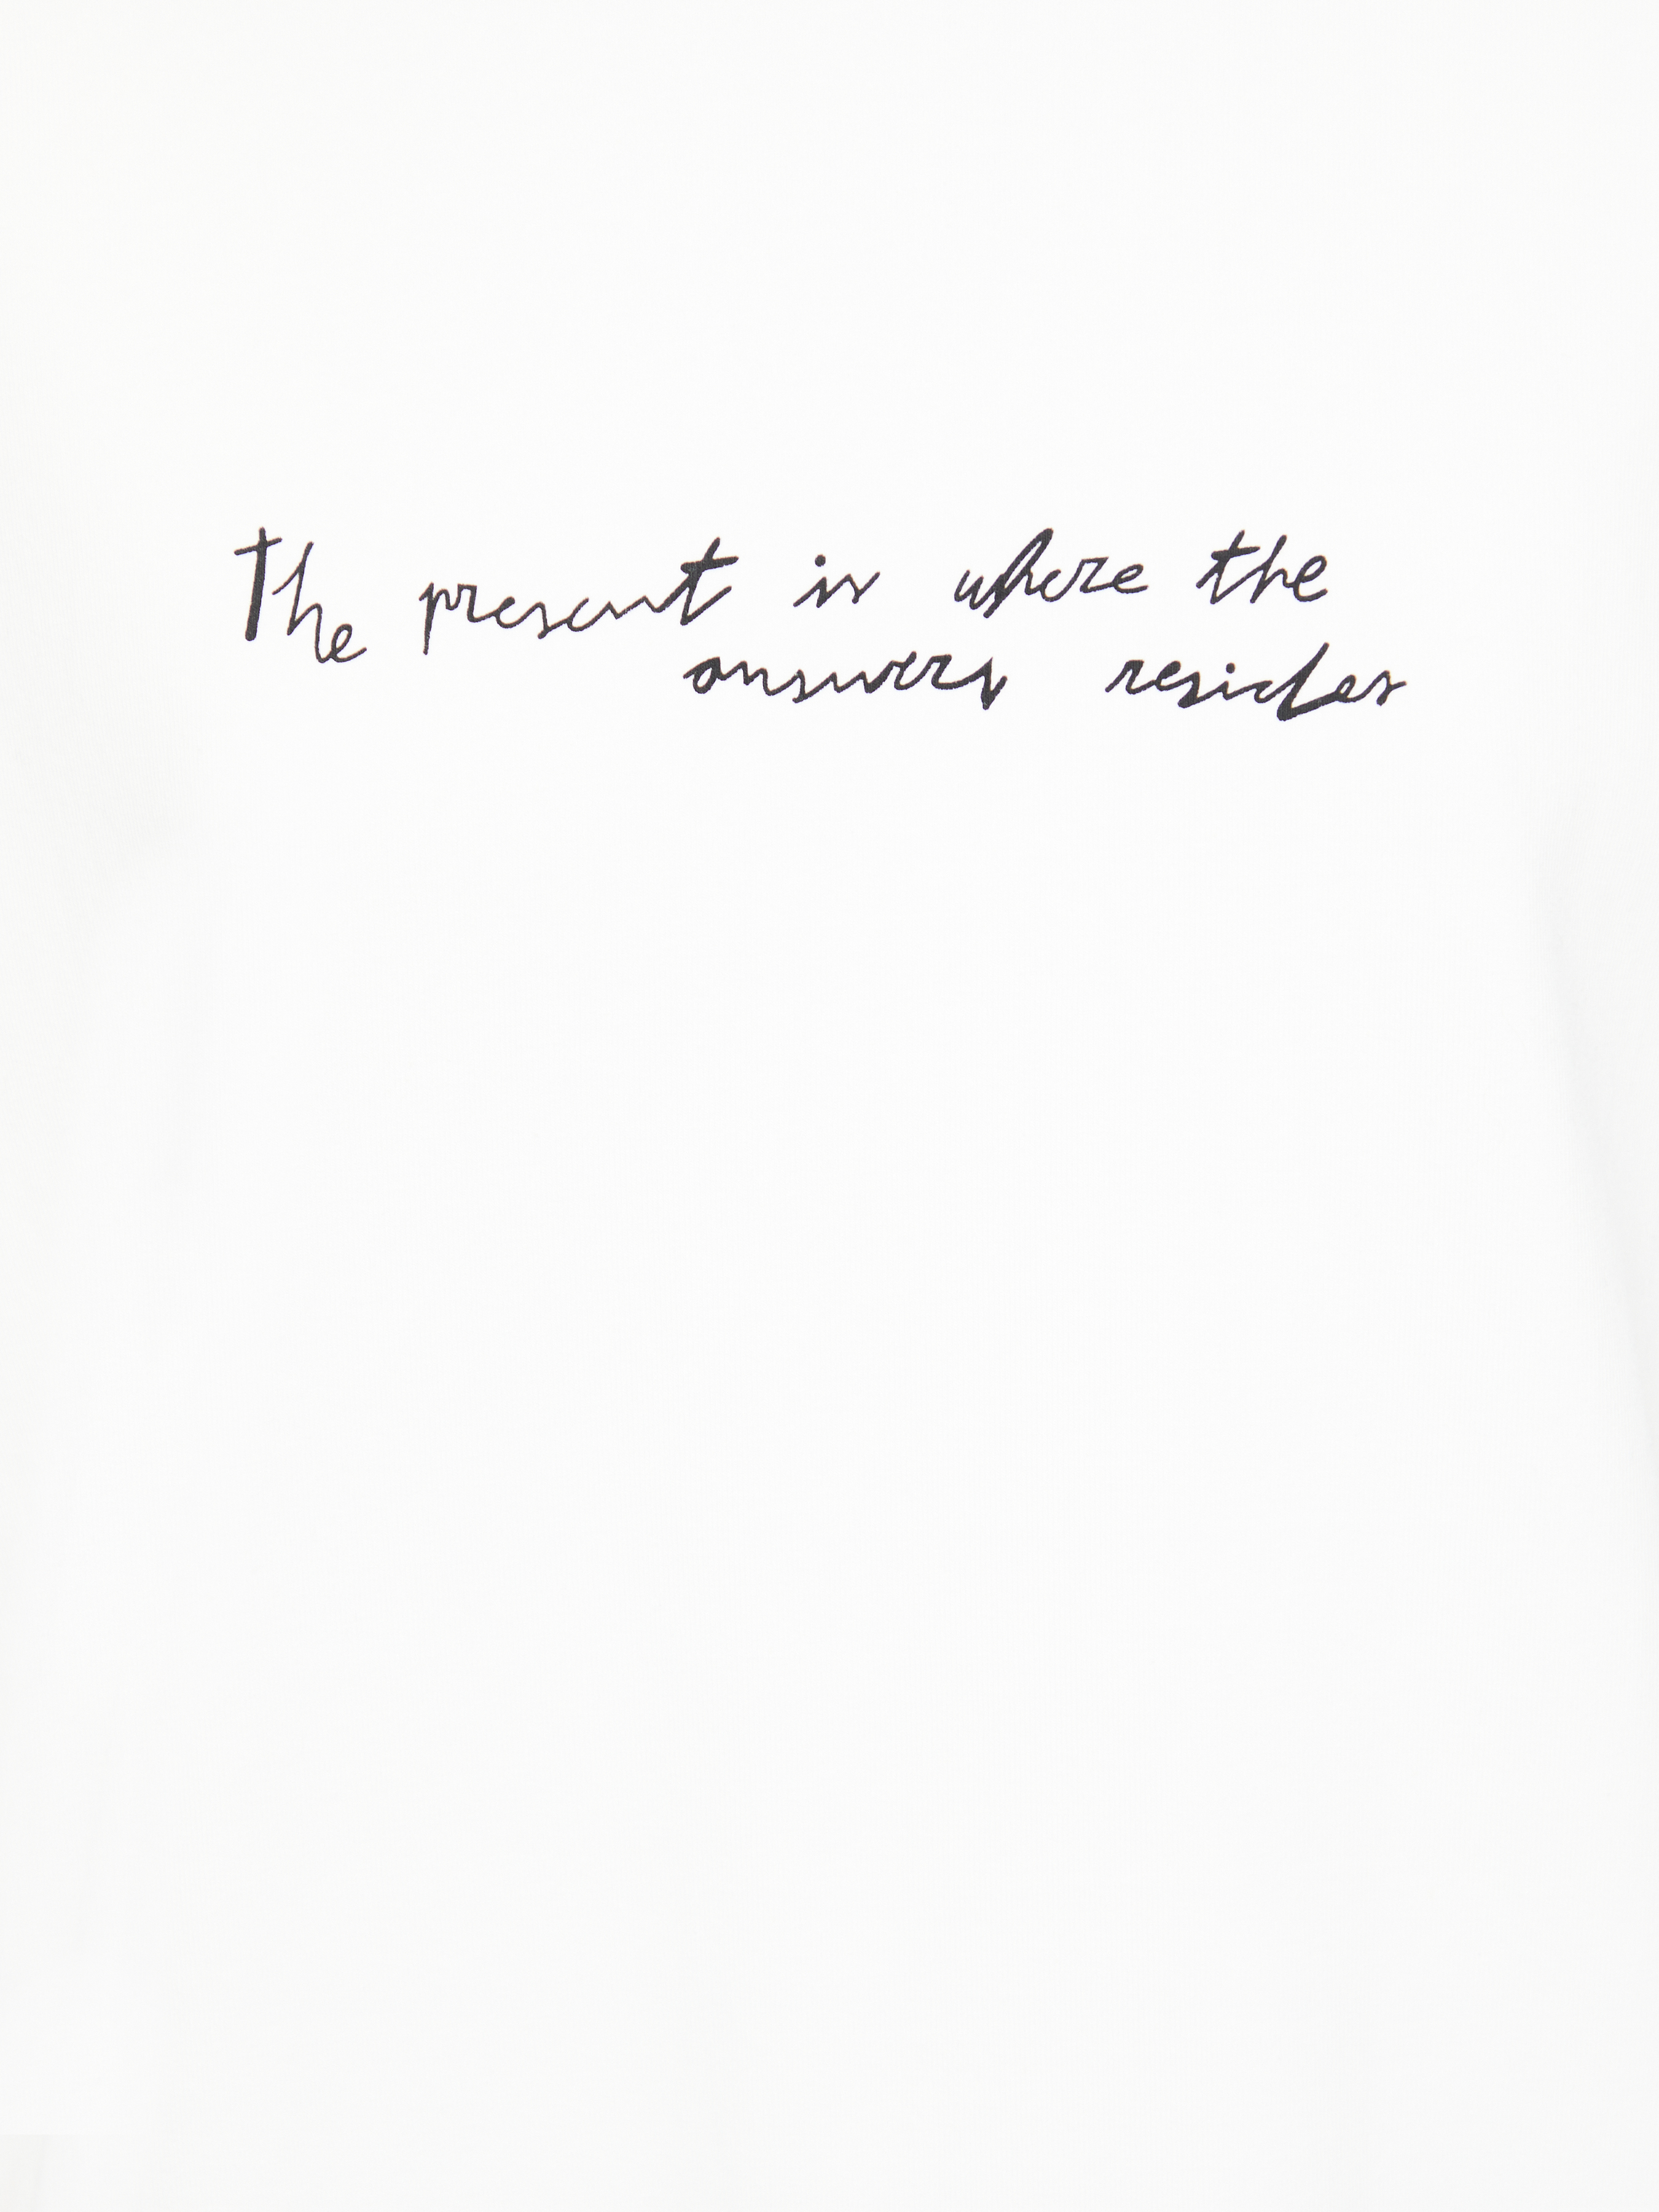 The present is where the
answers resides